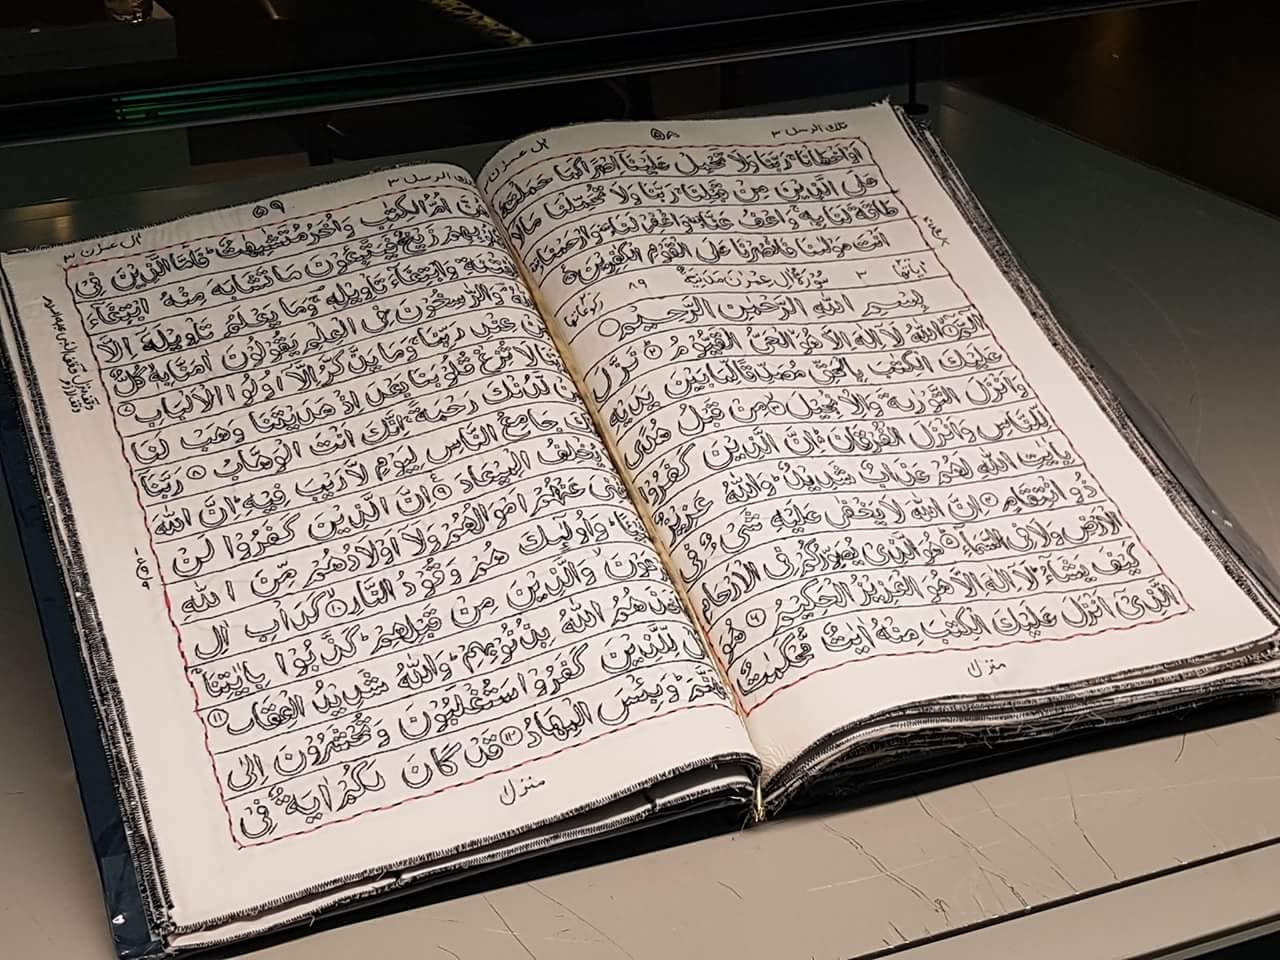 تلك الرسل ٣
٥٨
ال عمرٰن
اَوْ اَخْطَاْنَا ۚ رَبَّنَا وَلَا تَحْمِلْ عَلَيْنَآ اِصْرًا كَمَا حَمَلْتَهٗ
عَلَى الَّذِيْنَ مِنْ قَبْلِنَا ۚ رَبَّنَا وَلَا تُحَمِّلْنَا مَا لَا
طَاقَةَ لَنَا بِهٖ ۚ وَاعْفُ عَنَّا وَاغْفِرْ لَنَا وَارْحَمْنَا
اَنْتَ مَوْلٰىنَا فَانْصُرْنَا عَلَى الْقَوْمِ الْكٰفِرِيْنَ
اٰيَاتُهَا ٣ سُوْرَةُ اٰلِ عِمْرٰنَ مَدَنِيَّةٌ ٨٩ رُكُوْعَاتُهَا
بِسْمِ اللّٰهِ الرَّحْمٰنِ الرَّحِيْمِ
الٓمّٓ اللّٰهُ لَآ اِلٰهَ اِلَّا هُوَ الْحَيُّ الْقَيُّوْمُ ٢ نَزَّلَ
عَلَيْكَ الْكِتٰبَ بِالْحَقِّ مُصَدِّقًا لِّمَا بَيْنَ يَدَيْهِ
وَاَنْزَلَ التَّوْرٰىةَ وَالْاِنْجِيْلَ ٣ مِنْ قَبْلُ هُدًى
لِّلنَّاسِ وَاَنْزَلَ الْفُرْقَانَ ؕ اِنَّ الَّذِيْنَ كَفَرُوْا
بِاٰيٰتِ اللّٰهِ لَهُمْ عَذَابٌ شَدِيْدٌ ؕ وَاللّٰهُ عَزِيْزٌ
ذُو انْتِقَامٍ ٤ اِنَّ اللّٰهَ لَا يَخْفٰى عَلَيْهِ شَىْءٌ فِى
الْاَرْضِ وَلَا فِى السَّمَآءِ ٥ هُوَ الَّذِىْ يُصَوِّرُكُمْ فِى الْاَرْحَامِ
كَيْفَ يَشَآءُ ؕ لَآ اِلٰهَ اِلَّا هُوَ الْعَزِيْزُ الْحَكِيْمُ ٦ هُوَ
الَّذِىْٓ اَنْزَلَ عَلَيْكَ الْكِتٰبَ مِنْهُ اٰيٰتٌ مُّحْكَمٰتٌ
منزل
الرسل ٣
٥٩
ال عمرٰن ٣
اُمُّ الْكِتٰبِ وَاُخَرُ مُتَشٰبِهٰتٌ ؕ فَاَمَّا الَّذِيْنَ فِىْ
زَيْغٌ فَيَتَّبِعُوْنَ مَا تَشَابَهَ مِنْهُ ابْتِغَآءَ
وَابْتِغَآءَ تَاْوِيْلِهٖ ۚ وَمَا يَعْلَمُ تَاْوِيْلَهٗٓ اِلَّا
وَالرّٰسِخُوْنَ فِى الْعِلْمِ يَقُوْلُوْنَ اٰمَنَّا بِهٖ كُلٌّ
عِنْدِ رَبِّنَا ۚ وَمَا يَذَّكَّرُ اِلَّآ اُولُوا الْاَلْبَابِ ٧
لَا تُزِغْ قُلُوْبَنَا بَعْدَ اِذْ هَدَيْتَنَا وَهَبْ لَنَا
لَّدُنْكَ رَحْمَةً ۚ اِنَّكَ اَنْتَ الْوَهَّابُ ٨ رَبَّنَآ
جَامِعُ النَّاسِ لِيَوْمٍ لَّا رَيْبَ فِيْهِ ؕ اِنَّ اللّٰهَ
يُخْلِفُ الْمِيْعَادَ ٩ اِنَّ الَّذِيْنَ كَفَرُوْا لَنْ
عَنْهُمْ اَمْوَالُهُمْ وَلَآ اَوْلَادُهُمْ مِّنَ اللّٰهِ
وَاُولٰٓئِكَ هُمْ وَقُوْدُ النَّارِ ١٠ كَدَاْبِ اٰلِ
وَالَّذِيْنَ مِنْ قَبْلِهِمْ ؕ كَذَّبُوْا بِاٰيٰتِنَا
اللّٰهُ بِذُنُوْبِهِمْ ؕ وَاللّٰهُ شَدِيْدُ الْعِقَابِ ١١
لِّلَّذِيْنَ كَفَرُوْا سَتُغْلَبُوْنَ وَتُحْشَرُوْنَ اِلٰى
وَبِئْسَ الْمِهَادُ ١٢ قَدْ كَانَ لَكُمْ اٰيَةٌ فِىْ
منزل